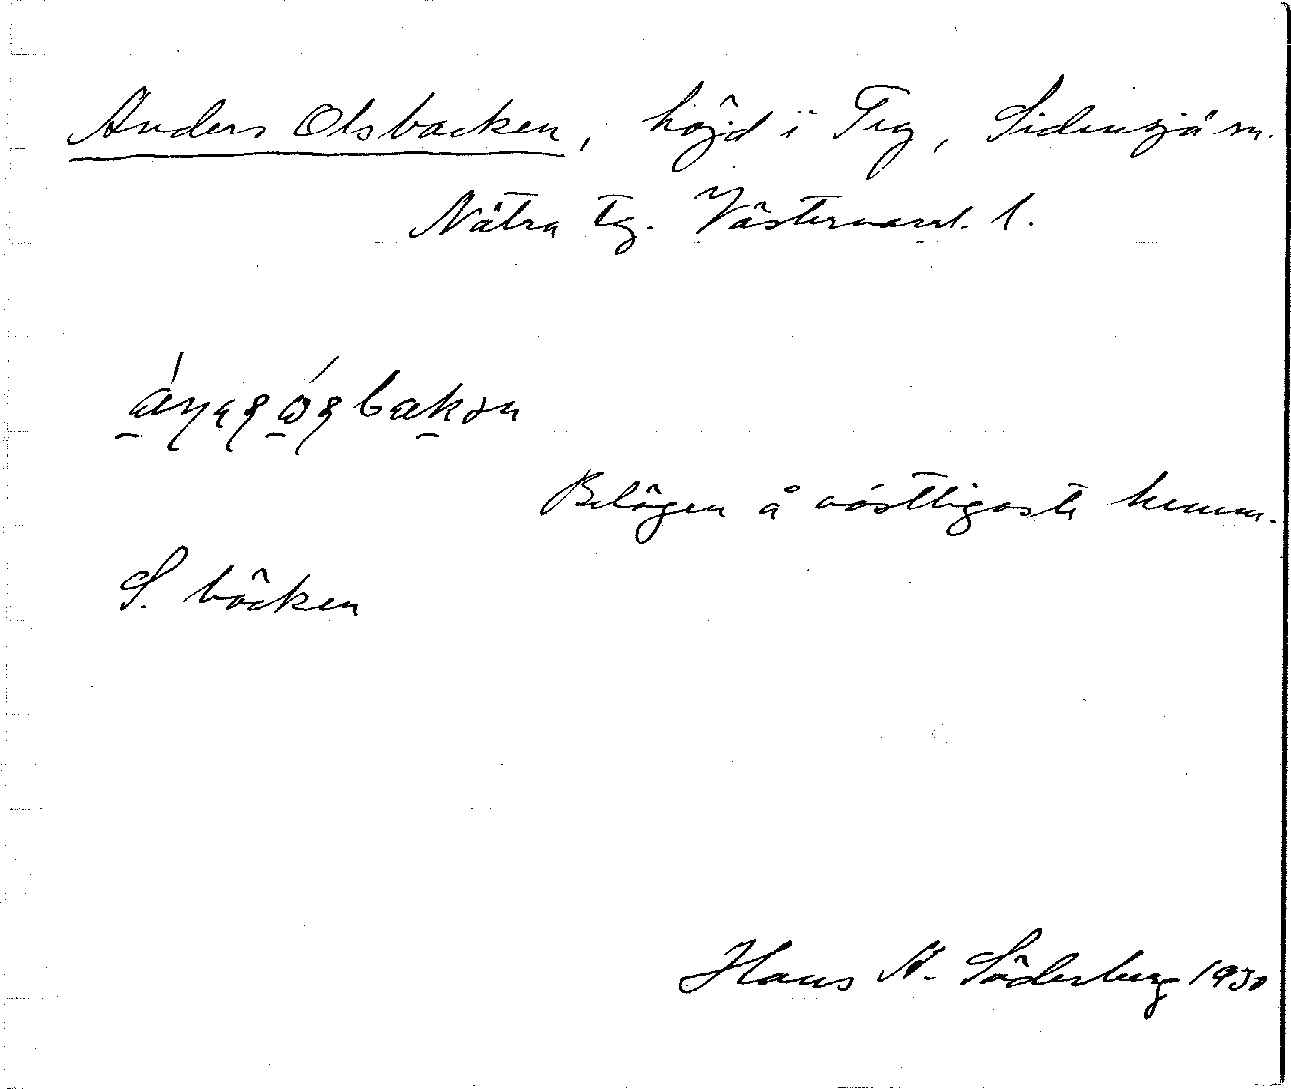 Anders Olsbacken, höjd i Teg, Sidensjö sn.
Nätra tg. Västernorrl. l.
Belägen å västligaste hemm.
S. bäcken
Hans A. Söderberg 1930